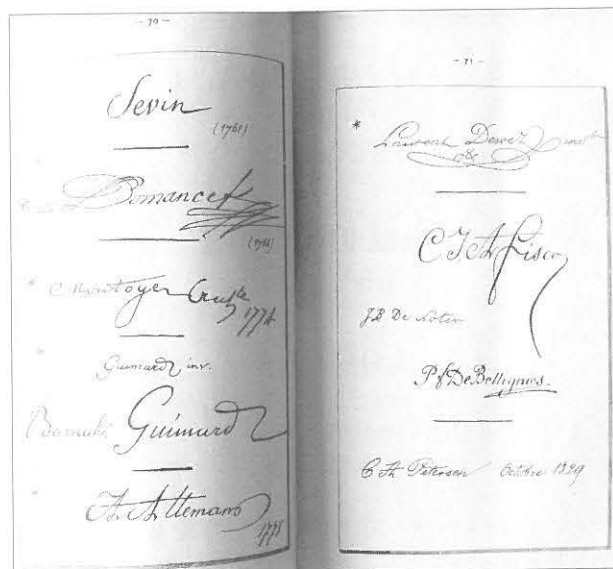 - 70 -
Sevin
(1761)
Bomance
(1766)
* C Montoyer
1774
* Guimard inv.
Barnabé Guimard
*
1778
- 71 -
* Laurent Dewez inv
C J A Fisco
J B De Noter
P f DeBettignies.
C Th Petersen Octobre 1829